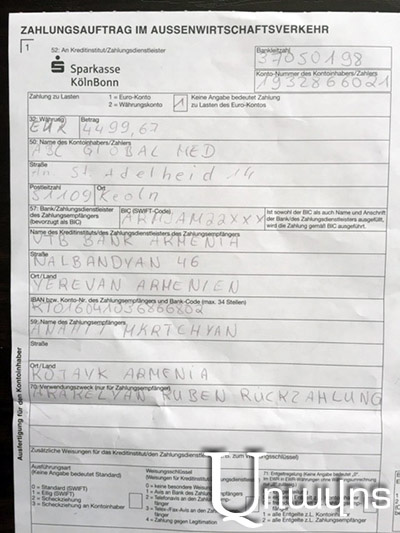 ZAHLUNGSAUFTRAG IM AUSSENWIRTSCHAFTSVERKEHR
1
52: An Kreditinstitut/Zahlungsdienstleister
Bankleitzahl
37050198
Sparkasse
KölnBonn
Konto-Nummer des Kontoinhabers/Zahlers
1932866021
Zahlung zu Lasten
1 = Euro-Konto
2 = Währungskonto
1
Keine Angabe bedeutet Zahlung
zu Lasten des Euro-Kontos
32: Währung
Betrag
EUR 4499,67
50: Name des Kontoinhabers/Zahlers
ABC GLOBAL MED
Straße
An St. Adelheid 14
Postleitzahl
Ort
51109 Keoln
57: Bank/Zahlungsdienstleister
des Zahlungsempfängers
(bevorzugt als BIC)
BIC (SWIFT-Code)
ARMJAM22XXX
Ist sowohl der BIC als auch Name und Anschrift
der Bank/des Zahlungsdienstleisters ausgefüllt,
wird die Zahlung gemäß BIC ausgeführt.
Name des Kreditinstituts/des Zahlungsdienstleisters des Zahlungsempfängers
VTB BANK ARMENIA
Straße
NALBANDYAN 46
Ort/Land
YEREVAN ARMENIEN
IBAN bzw. Konto-Nr. des Zahlungsempfängers und Bank-Code (max. 34 Stellen)
59: Name des Zahlungsempfängers
ANAHIT MKRTCHYAN
Straße
Ort/Land
KOTAYK ARMENIA
70: Verwendungszweck (nur für Zahlungsempfänger)
ARAKELYAN RUBEN RUCKZAHLUNG
Ausfertigung für den Kontoinhaber
Zusätzliche Weisungen für das Kreditinstitut/den Zahlungsdienstleister
zum Weisungsschlüssel)
Ausführungsart
(Keine Angabe bedeutet Standard)
0 = Standard (SWIFT)
1 = Eilig (SWIFT)
2 = Scheckziehung
3 = Scheckziehung an Kontoinhaber
Weisungsschlüssel
(Weisungen für Kreditinstitut/Zahlungsdienstleister)
0 = keine besondere Weisung
1 = Avis an Bank des Zahlungsempf.
4 = Zahlung gegen Legitimation
71: Entgeltregelung (Keine Angabe bedeutet „0",
Ասպարեզ